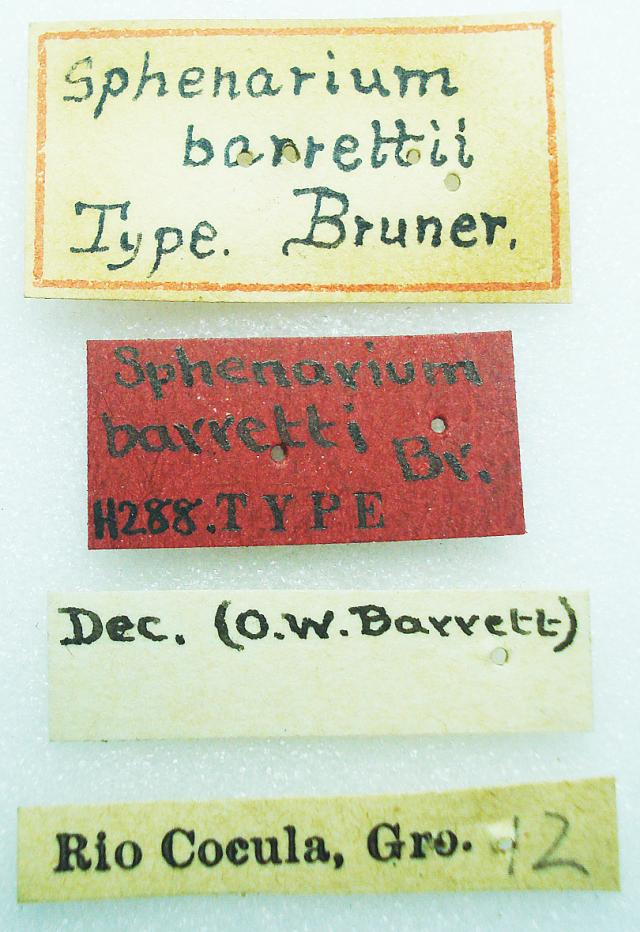 Sphenarium
barrettii
Type. Bruner.
Sphenarium
barretti Br.
H288. TYPE
Dec. (O.W. Barrett)
Rio Cocula, Gro. 12